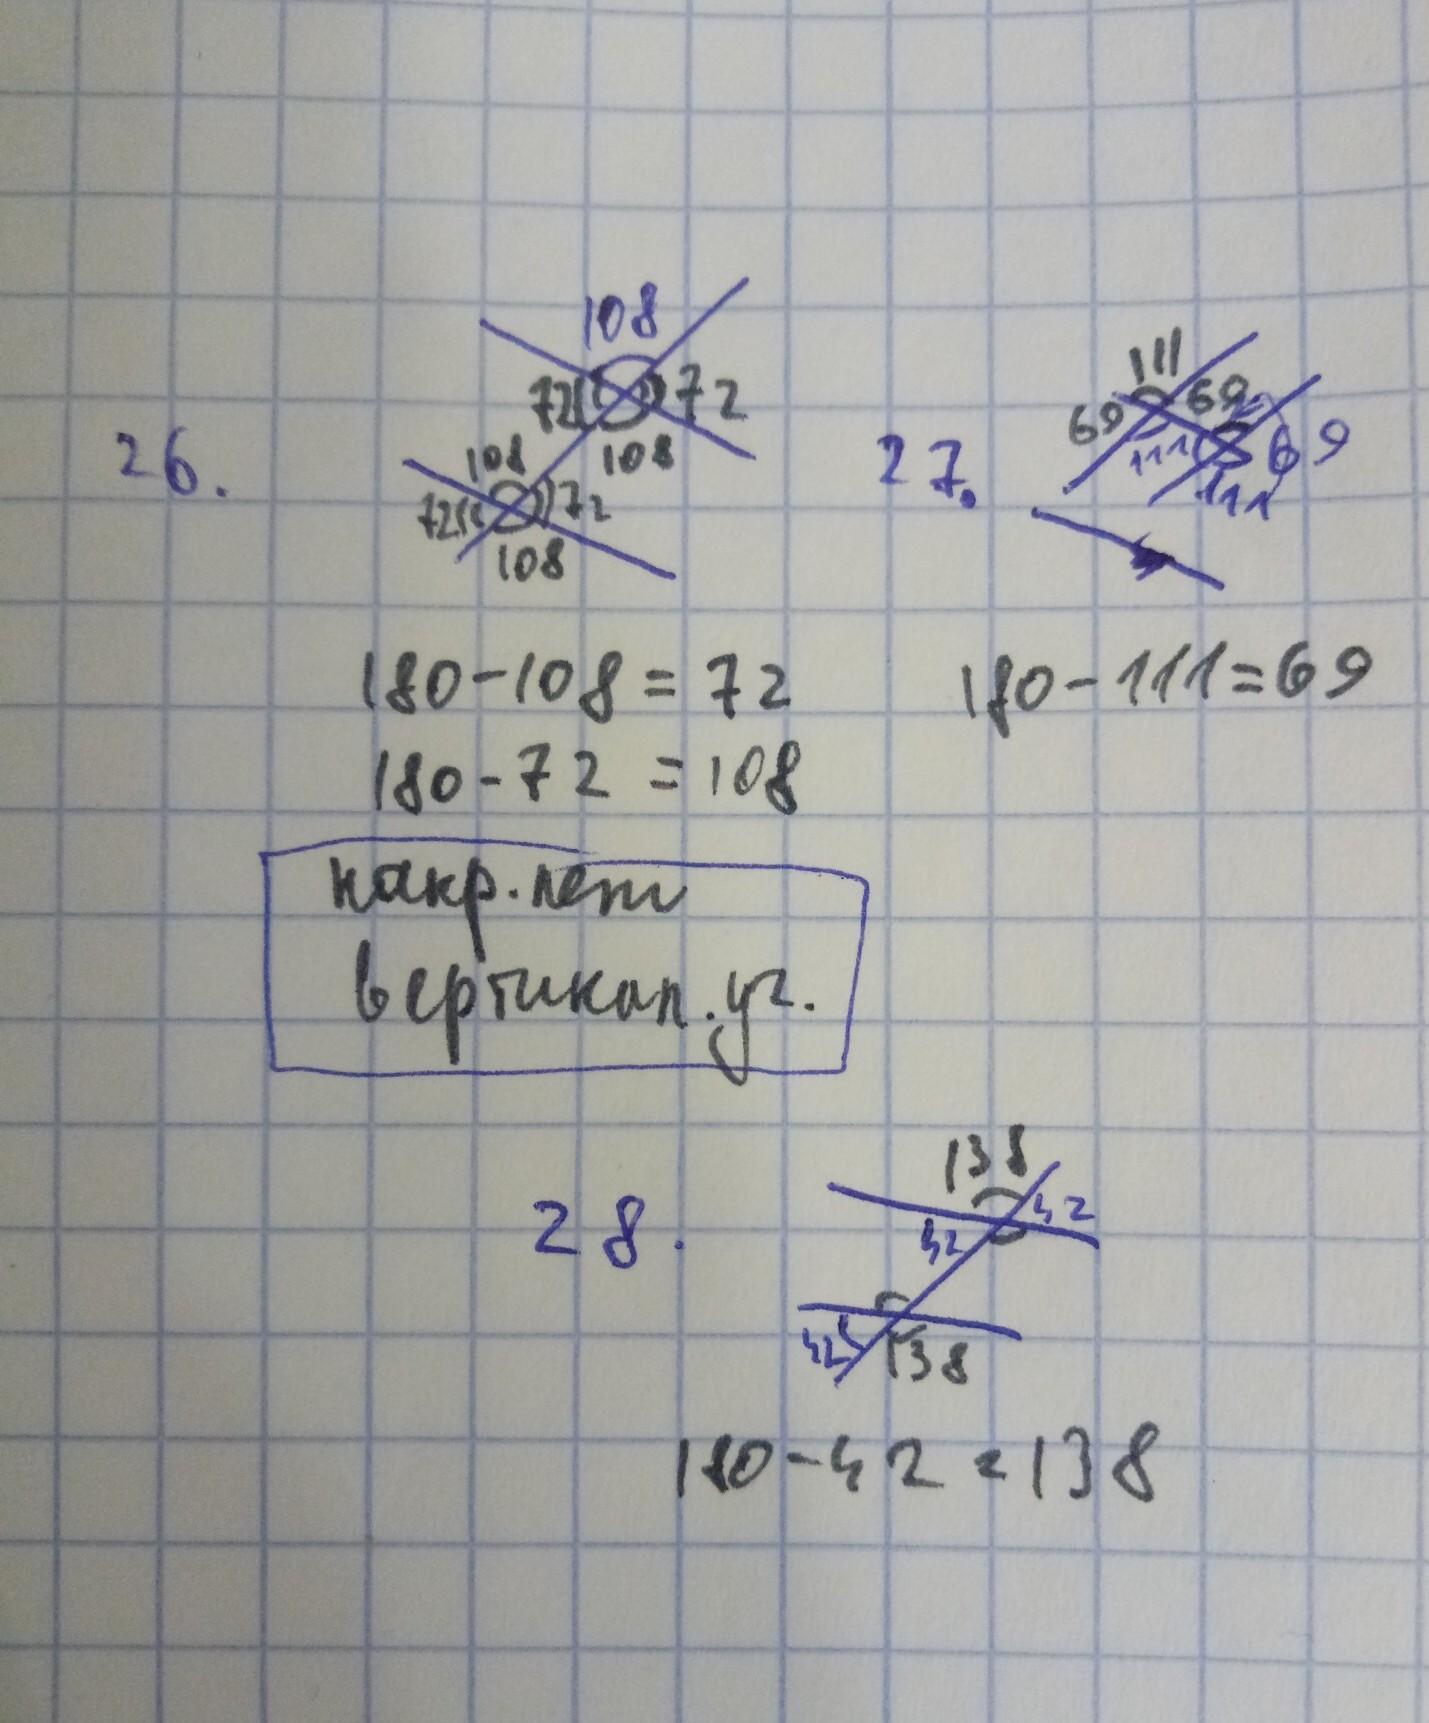 26.
108
72
72
108
108
72
72
108
180-108=72
180-72=108
накр.леж
вертикал.уг.
27.
111
69
69
111
69
111
180-111=69
28.
138
42
42
42
138
180-42=138